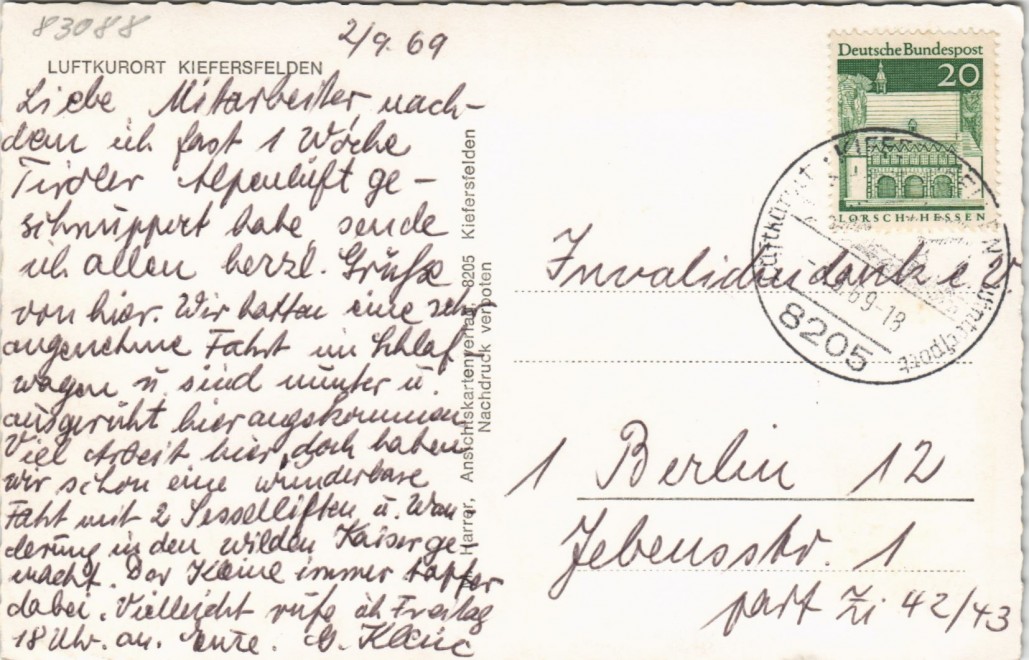 83088
2/9. 69
LUFTKURORT KIEFERSFELDEN
Liebe Mitarbeiter, nach-
dem ich fast 1 Woche
Tiroler Alpenluft ge-
schnuppert habe sende
ich allen herzl. Grüße
von hier. Wir hatten eine sehr
angenehme Fahrt im Schlaf
wagen u. sind munter u.
ausgeruht hier angekommen
Viel Arbeit hier, doch haben
wir schon eine wunderbare
Fahrt mit 2 Sesselliften u. Wan-
derung in den wilden Kaiser ge-
macht. Der Kleine immer tapfer
dabei. Vielleicht rufe ich Freitag
18 Uhr. an. Eure. G.
Harrer, Ansichtskartenverlag, 8205 Kiefersfelden
Nachdruck verboten
Deutsche Bundespost
20
LORSCH/HESSEN
Luftkurort
8205
69-18
Wintersport
Invalidendank e.V
1 Berlin 12
Jebensstr. 1
part Zi 42/43